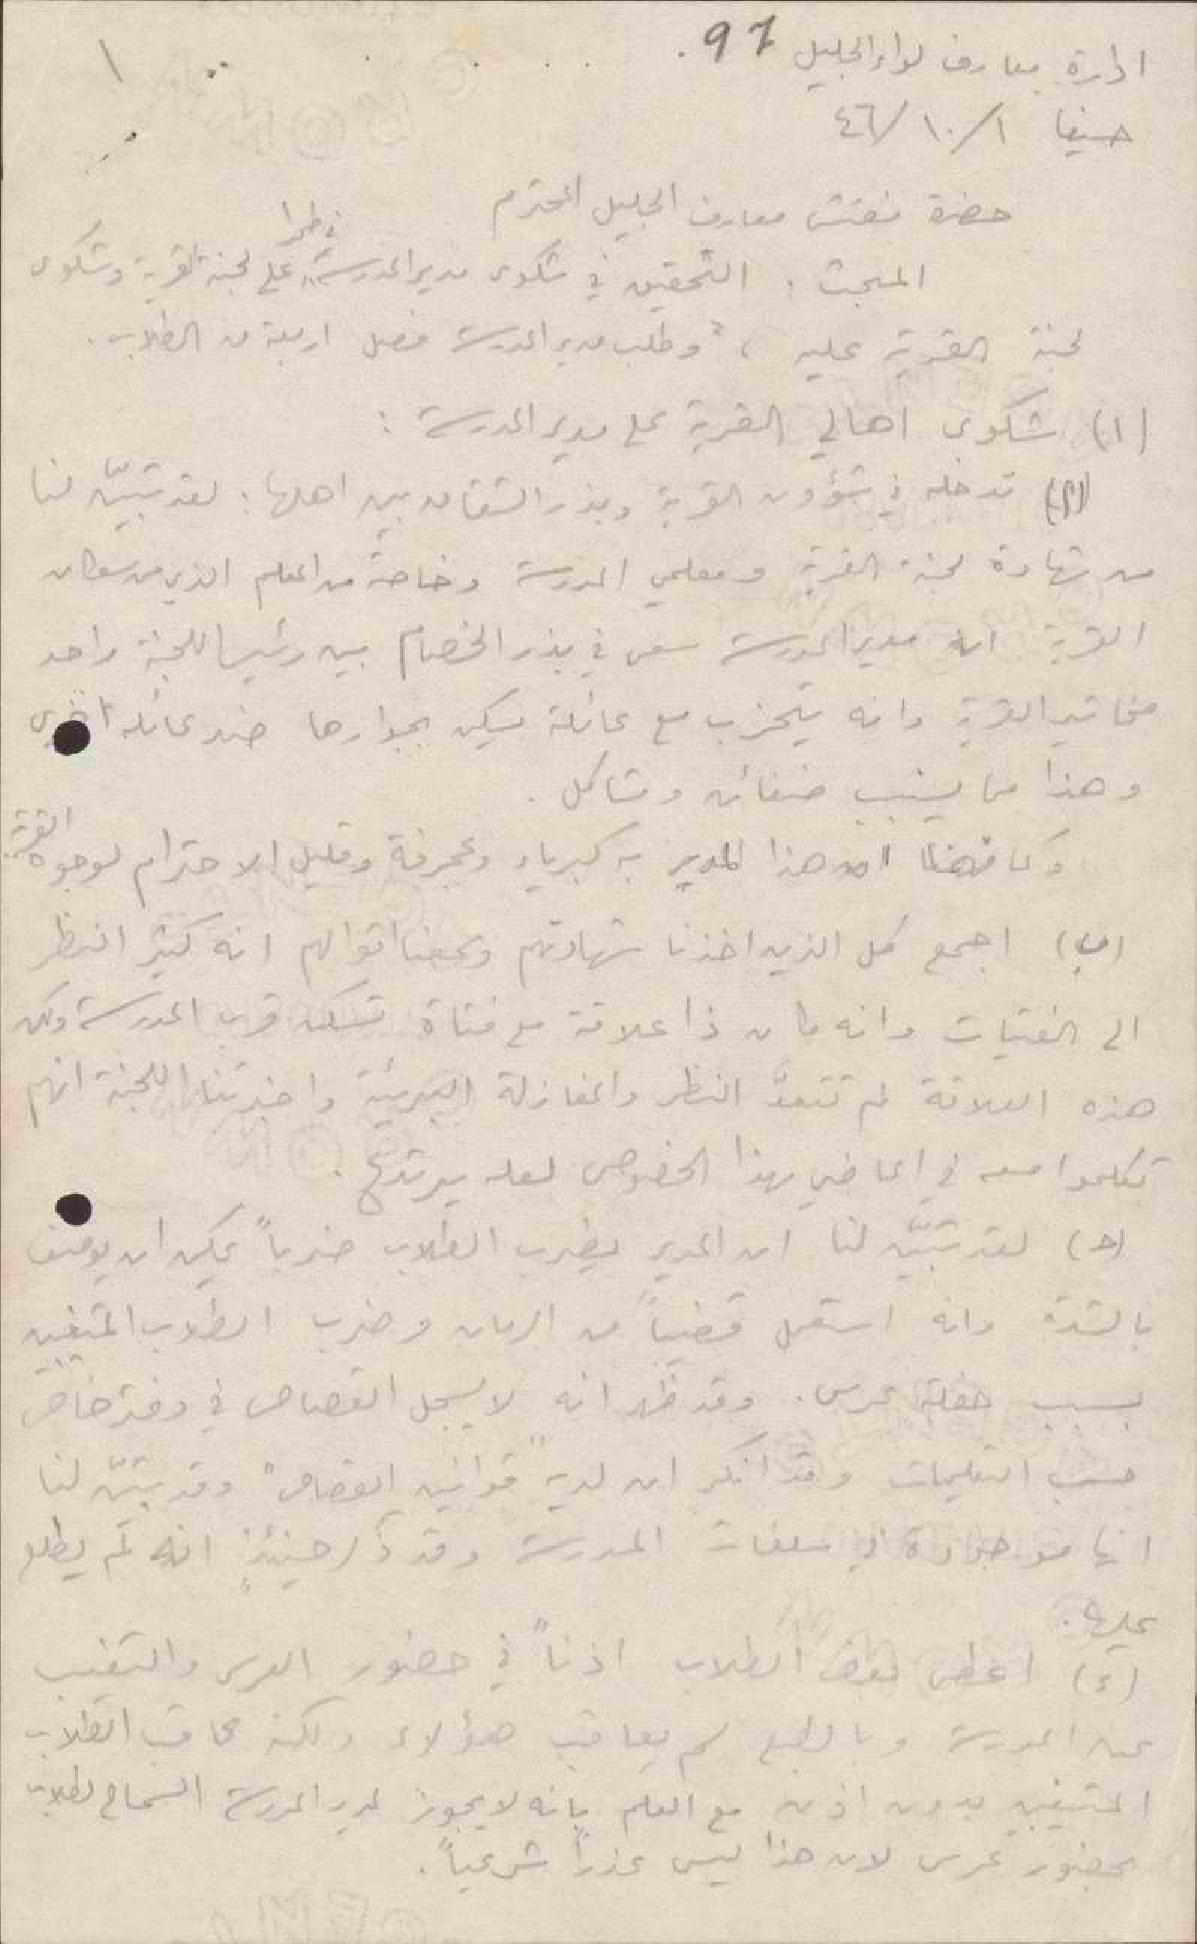 ادارة معارف لواء الجليل 97.
١
حيفا ١/١٠/٤٦
حضرة مفتش معارف الجليل المحترم
المبحث : التحقيق في شكوى مدير المدرسة في طمرا على لجنة القرية وشكوى
لجنة القرية عليه ، وطلب مدير المدرسة فصل اربعة من الطلاب .
(١) شكوى اهالي القرية على مدير المدرسة :
(أ) تدخله في شؤون القرية وبذر الشقاق بين اهلها : لقد تبيّن لنا
من شهادة لجنة القرية ومعلمي المدرسة وخاصة من المعلم الذي من سكان
القرية ان مدير المدرسة سعى في بذر الخصام بين رئيس اللجنة واحد
مخاتير القرية وانه يتحزب مع عائلة يسكن بجوارها ضد عائلة اخرى
وهذا مما يسبب ضغائن ومشاكل .
وكما فهمنا ان هذا المدير به كبرياء وعجرفة وقليل الاحترام لوجوه القرية
(ب) اجمع كل الذين اخذنا شهادتهم وسمعنا اقوالهم انه كثير النظر
الى الفتيات وانه كان ذا علاقة مع فتاة تسكن قرب المدرسة ولكن
هذه العلاقة لم تتعدَّ النظر والمغازلة البريئة واخبرتنا اللجنة انهم
تكلموا معه في الماضي بهذا الخصوص لعله يرتدع .
(ج) لقد تبيّن لنا ان المدير يضرب الطلاب ضرباً يمكن ان يوصف
بالشدة وانه استعمل قضيباً من الرمان وضرب الطلاب المتغيبين
بسبب حفلة عرس . وقد ظهر انه لا يسجل القصاص في دفتر خاص
حسب التعليمات وقد انكر ان لديه "قوانين القصاص" وقد تبيّن لنا
انها موجودة في ملفات المدرسة وقد ذكر حينئذٍ انه لم يطلع
عليها .
(د) اعطى بعض الطلاب اذناً في حضور العرس والتغيب
عن المدرسة وبالطبع لم يعاقب هؤلاء ولكنه عاقب الطلاب
المتغيبين بدون اذن مع العلم بانه لا يجوز لمدير المدرسة السماح لطلاب
بحضور عرس لان هذا ليس عذراً شرعياً .